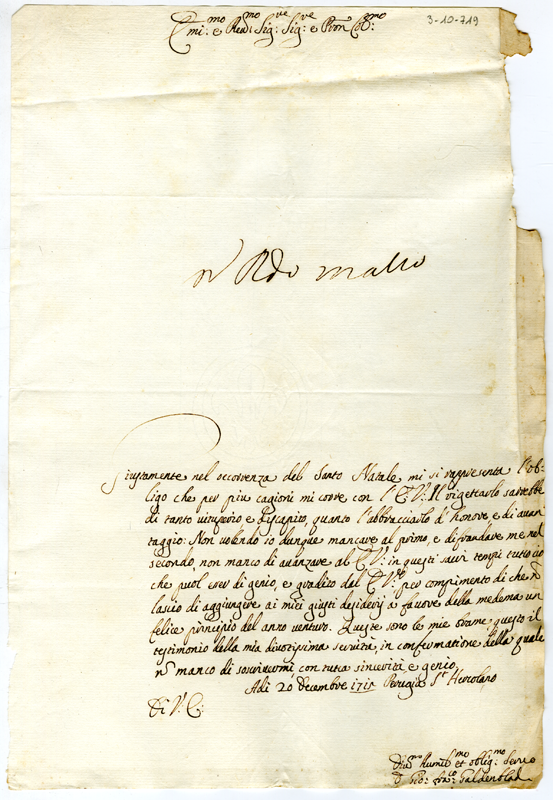 3-10-719
Emi:mo e Reu:mo Sig:re Sig:re e Pron Col:mo
Giustamente nel occorrenza del Santo Natale mi si rappresenta l'ob-
ligo che per piu cagioni mi corre con l'E V: Il rigettarlo sarrebbe
di tanto vituperio e discapito, quanto l'abbracciarlo d'honore, e di auan
taggio: Non volendo io dunque mancare al primo, e difraudare me nel
secondo, non manco di auanzare al E V: in questi sacri tempi tutto cio
che puol esser di genio, e gradito dal E V.ra per compimento di che ñ
lascio di aggiungere ai miei giusti desiderij a fauore della medema un
felice principio del anno venturo. Queste sono le mie brame: questo il
testimonio della mia diuotissima seruitù, in confermatione della quale
ñ manco di souuiuermi con tutta sincerità e genio,
Adi 20 decembre 1715 Perugia S.t Hercolano
Di V: E:
Diu:mo humil:mo et oblig:mo Seruo
D Gio: Fra:co Galdenblad